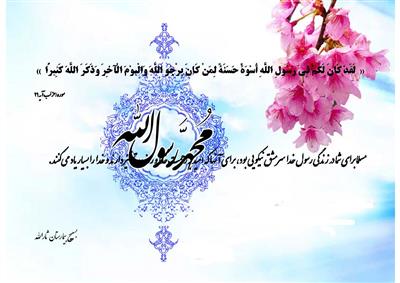 « لَقَدْ كَانَ لَكُمْ فِي رَسُولِ اللَّهِ أُسْوَةٌ حَسَنَةٌ لِمَنْ كَانَ يَرْجُو اللَّهَ وَالْيَوْمَ الْآخِرَ وَذَكَرَ اللَّهَ كَثِيرًا »
سوره احزاب آیه ۲۱
مُحَمَّد رَسُولُ الله
مسلما برای شما در زندگی رسول خدا سرمشق نیکویی بود، برای آنها که امید دارند و خدا را بسیار یاد می کنند.
بسیج بیمارستان ثارالله